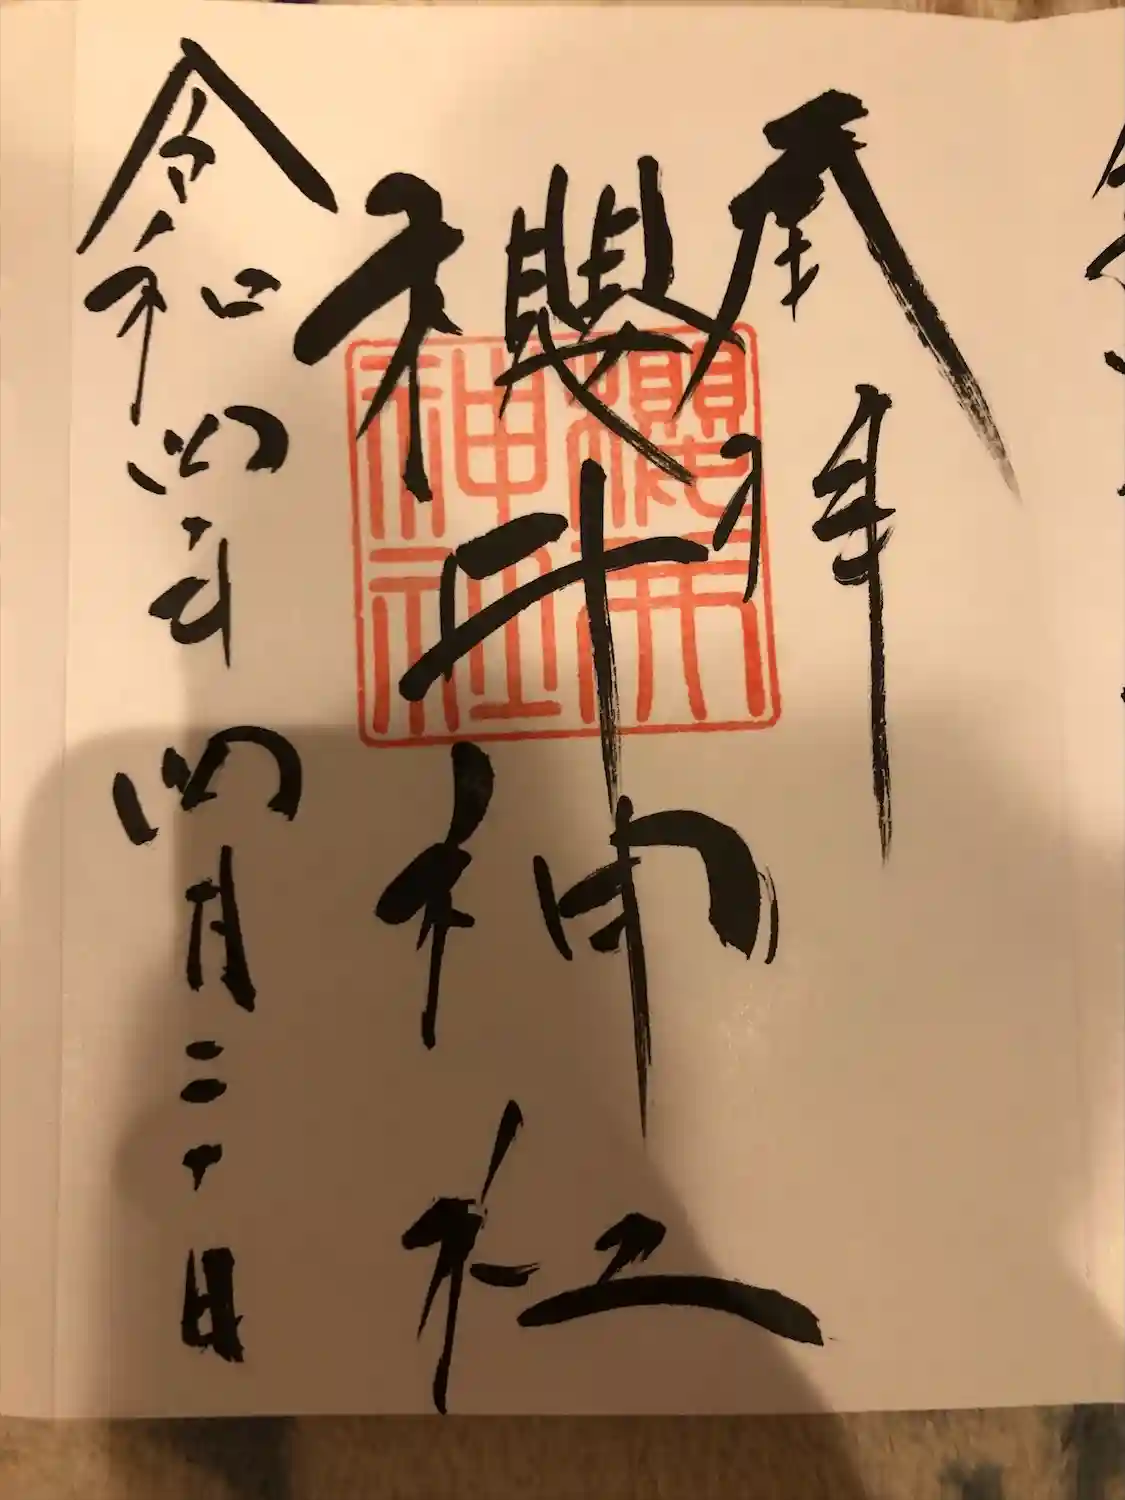 奉拝
櫻井神社
令和四年四月二十日
櫻井
神社